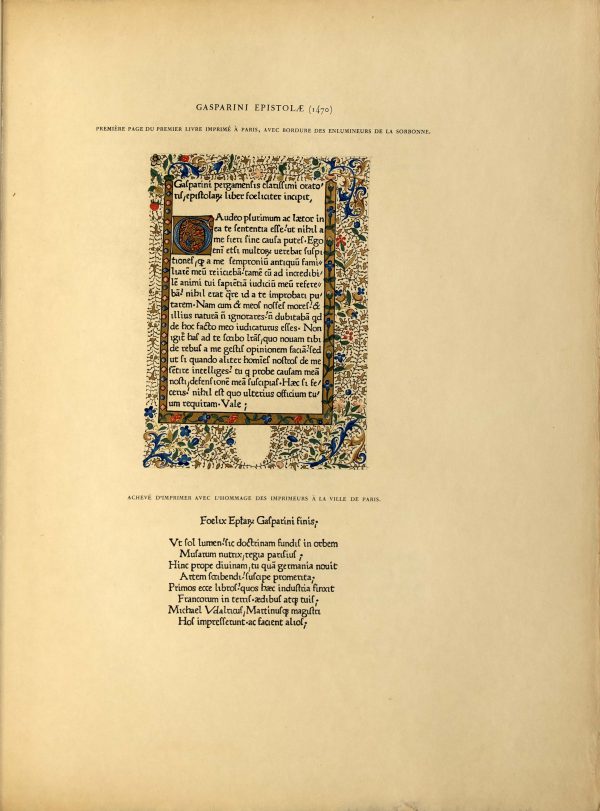 GASPARINI EPISTOLÆ (1470)
PREMIÈRE PAGE DU PREMIER LIVRE IMPRIMÉ À PARIS, AVEC BORDURE DES ENLUMINEURS DE LA SORBONNE.
Gasparini pergamensis clarissimi orato
ris, epistolaꝝ liber foeliciter incipit,
Gaudeo plurimum ac lætor in
ea te sententia esse, ut nihil a
me fieri sine causa putes. Ego
eni etsi multoꝝ uerebar suspi
tiones, ꝙ a me semproniū antiquū fami-
liarē meū reiiciebā, tamē cū ad incredibi
lē animi tui sapiētiā iudiciū meū refere-
bā, nihil erat qre id a te improbari pu-
tarem. Nam cum & meos nosses mores, &
illius naturā nō ignorares, nō dubitabā qd
de hoc facto meo iudicaturus esses. Non
igit̄ has ad te scribo lr̄as, quo nouam tibi
de rebus a me gestis opinionem faciā, sed
ut si quando aliter homīes nostros de me
sētire intelliges, tu ꝙ probe causam meā
nosti, defensionē meā suscipias. Hæc si fe-
ceris, nihil est quo ulterius officium tu-
um requiram. Vale;
ACHEVÉ D'IMPRIMER AVEC L'HOMMAGE DES IMPRIMEURS À LA VILLE DE PARIS.
Foelix Eplaꝝ Gasparini finis;
Vt sol lumen, sic doctrinam fundis in orbem
Musarum nutrix, regia parisius;
Hinc prope diuinam, tu quā germania nouit
Artem scribendi, suscipe promerita;
Primos ecce libros, quos hæc industria finxit
Francorum in terris, ædibus atq̨ tuis;
Michael Vdalricus, Martinusq̨ magistri
Hos impresserunt, ac facient alios;